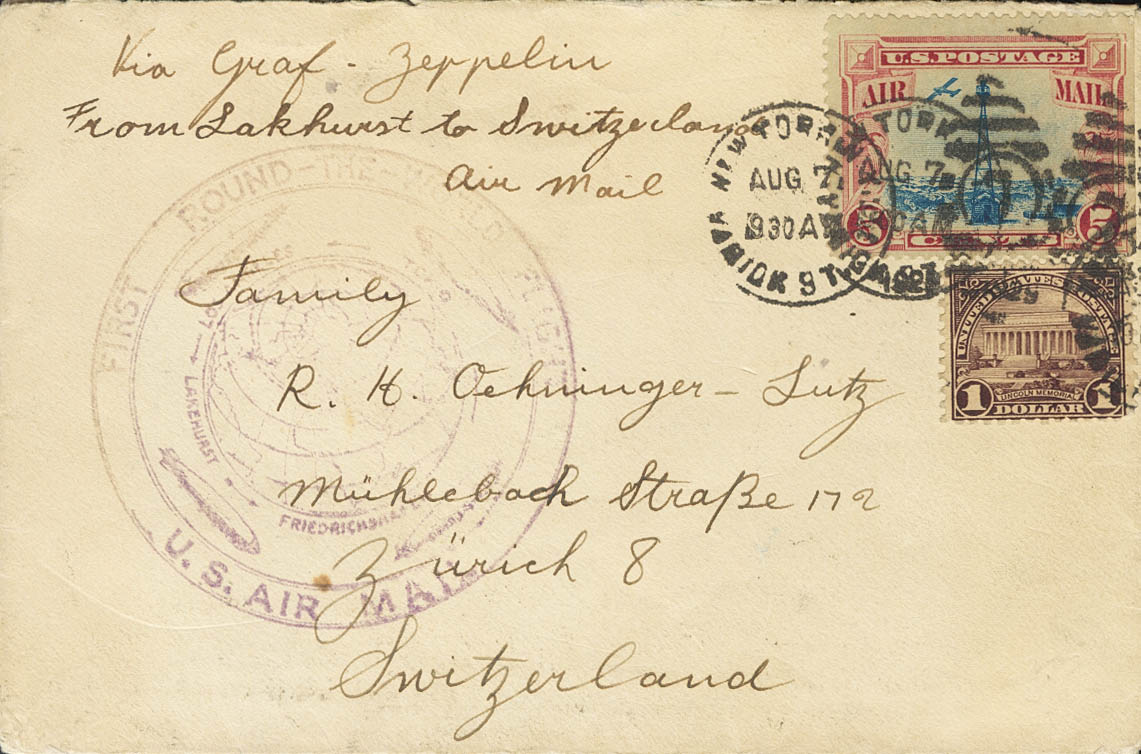 Via Graf - Zeppelin
From Lakhurst to Switzerland
Air Mail
Family
R. H. Oehninger - Lutz
Mühlebach Straße 172
Zürich 8
Switzerland
FIRST ROUND-THE-WORLD FLIGHT
U.S. AIR MAIL
LAKEHURST
FRIEDRICHSHAFEN
TOKYO
NEW YORK
AUG 7
930 AM
VARICK ST.
NEW YORK
AUG 7
1929
U.S. POSTAGE
AIR MAIL
5 CENTS 5
UNITED STATES POSTAGE
LINCOLN MEMORIAL
1 DOLLAR 1